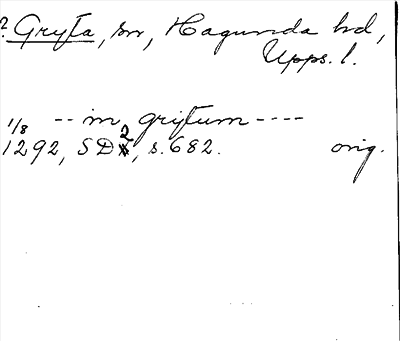 ? Gryta, sn, Hagunda hd,
Upps. l.
1/8 -- in grijtum ----
1292, SD 2, s. 682. orig.